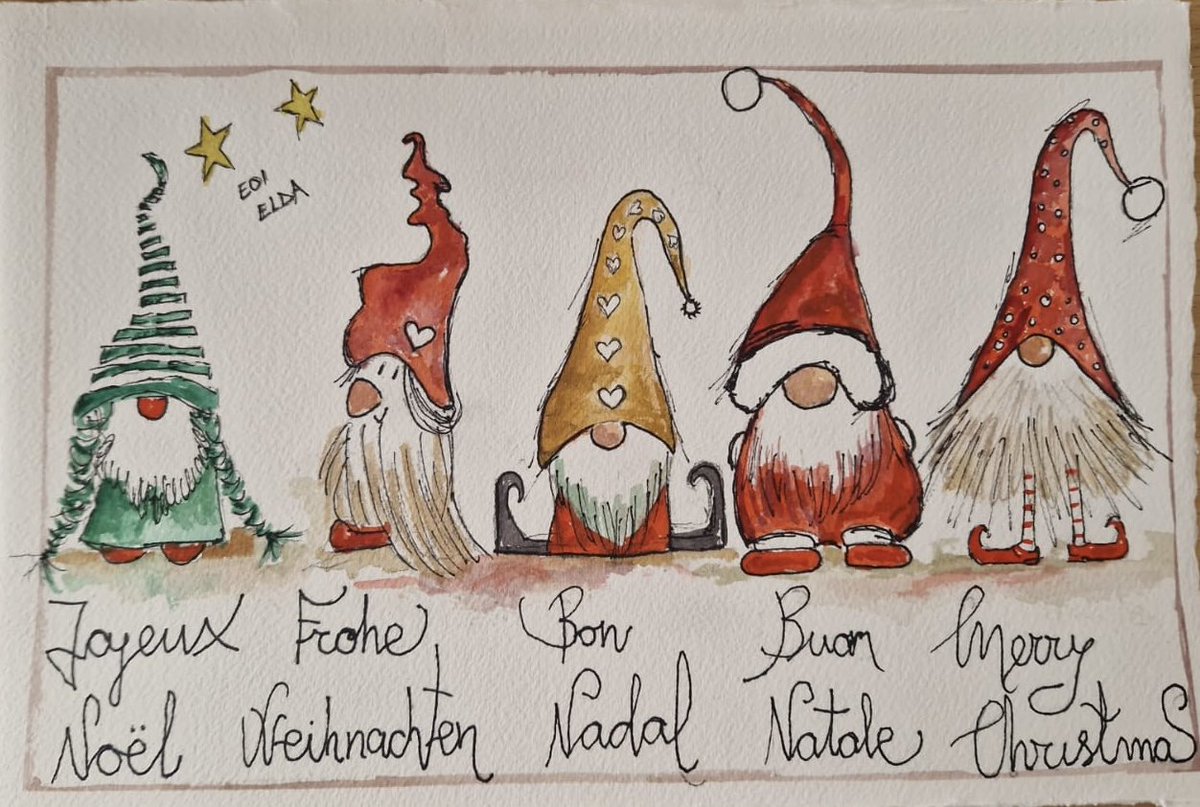 EOI
ELDA
Joyeux Frohe Bon Buon Merry
Noël Weihnachten Nadal Natale Christmas